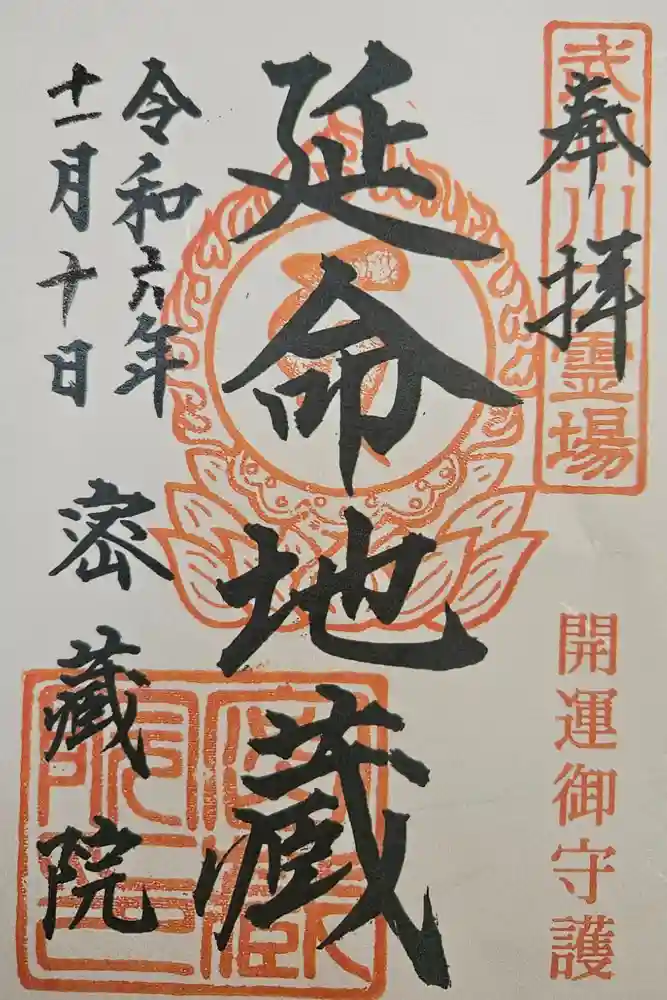 奉拝
武州川口霊場
開運御守護
延命地蔵
令和六年
十一月十日
密蔵院